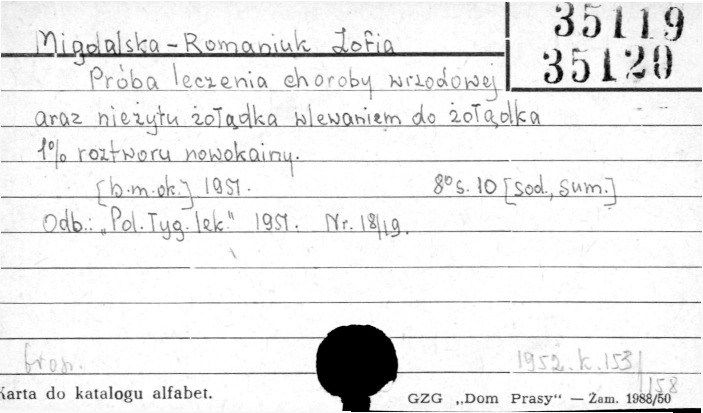 35119
35120
Migdalska-Romaniuk Zofia
Próba leczenia choroby wrzodowej
oraz nieżytu żołądka wlewaniem do żołądka
1% roztworu nowokainy.
[b.m.ok.] 1951. 8° s. 10 [sod., sum.]
Odb.: „Pol. Tyg. lek." 1951. Nr. 18/19.
brosz.
1952. k. 153/158
Karta do katalogu alfabet.
GZG „Dom Prasy" — Zam. 1988/50